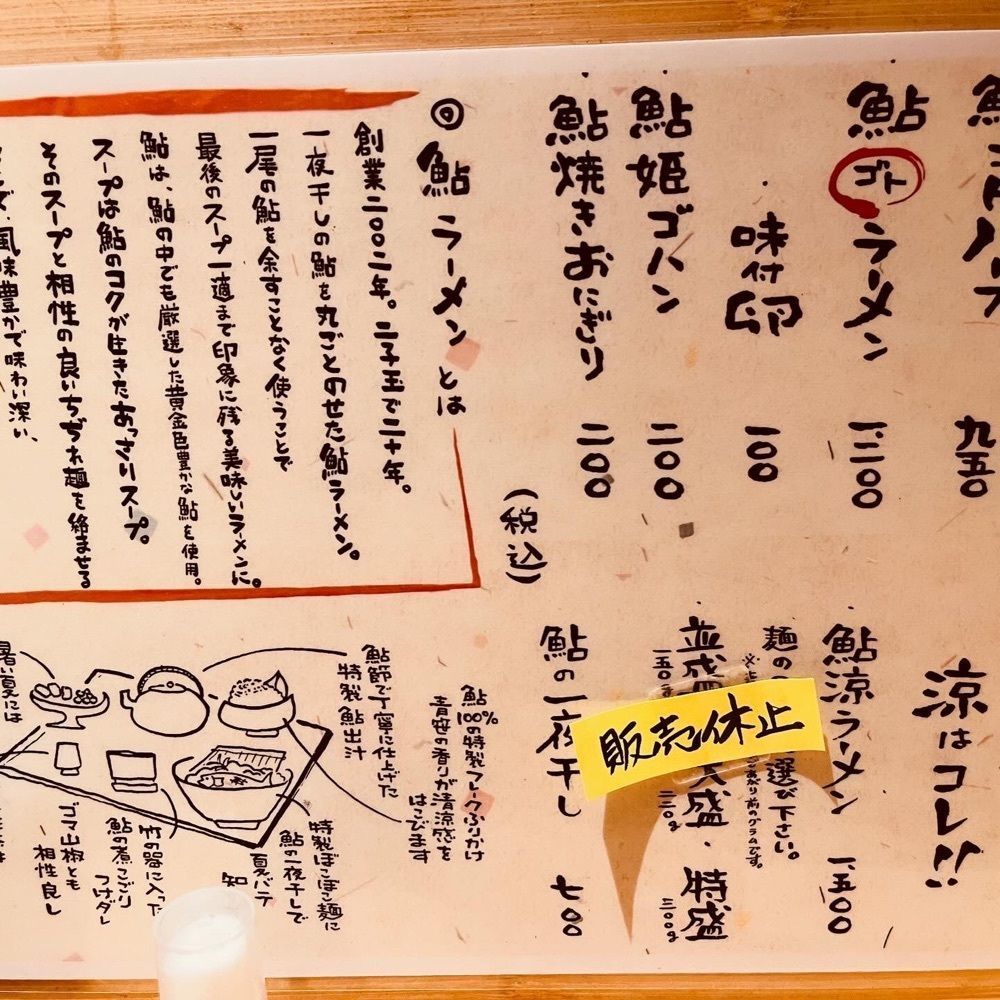 九五〇
鮎ゴトラーメン
一、三〇〇
味付卵
一〇〇
鮎姫ゴハン
二〇〇
鮎焼きおにぎり
二〇〇
(税込)
鮎ラーメンとは
創業二〇〇二年。二子玉で二十年。
一夜干しの鮎を丸ごとのせた鮎ラーメン。
一尾の鮎を余すことなく使うことで
最後のスープ一滴まで印象に残る美味しいラーメンに。
鮎は、鮎の中でも厳選した黄金色豊かな鮎を使用。
スープは鮎のコクが生きたあっさりスープ。
そのスープと相性の良いちぢれ麺を絡ませる
風味豊かで味わい深い、
涼はコレ!!
鮎涼ラーメン
一、五〇〇
麺の
選び下さい。
あがり前のグラムです。
並盛
大盛・特盛
三〇〇g
販売休止
鮎の一夜干し
七〇〇
鮎100%の特製フレークふりかけ
青笹の香りが清涼感を
はこびます
鮎節で丁寧に仕上げた
特製鮎出汁
特製ぽこぽこ麺に
鮎の一夜干しで
夏バテ
知
竹の器に入った
鮎の煮こごり
つけダレ
ゴマ山椒とも
相性良し
暑い夏には